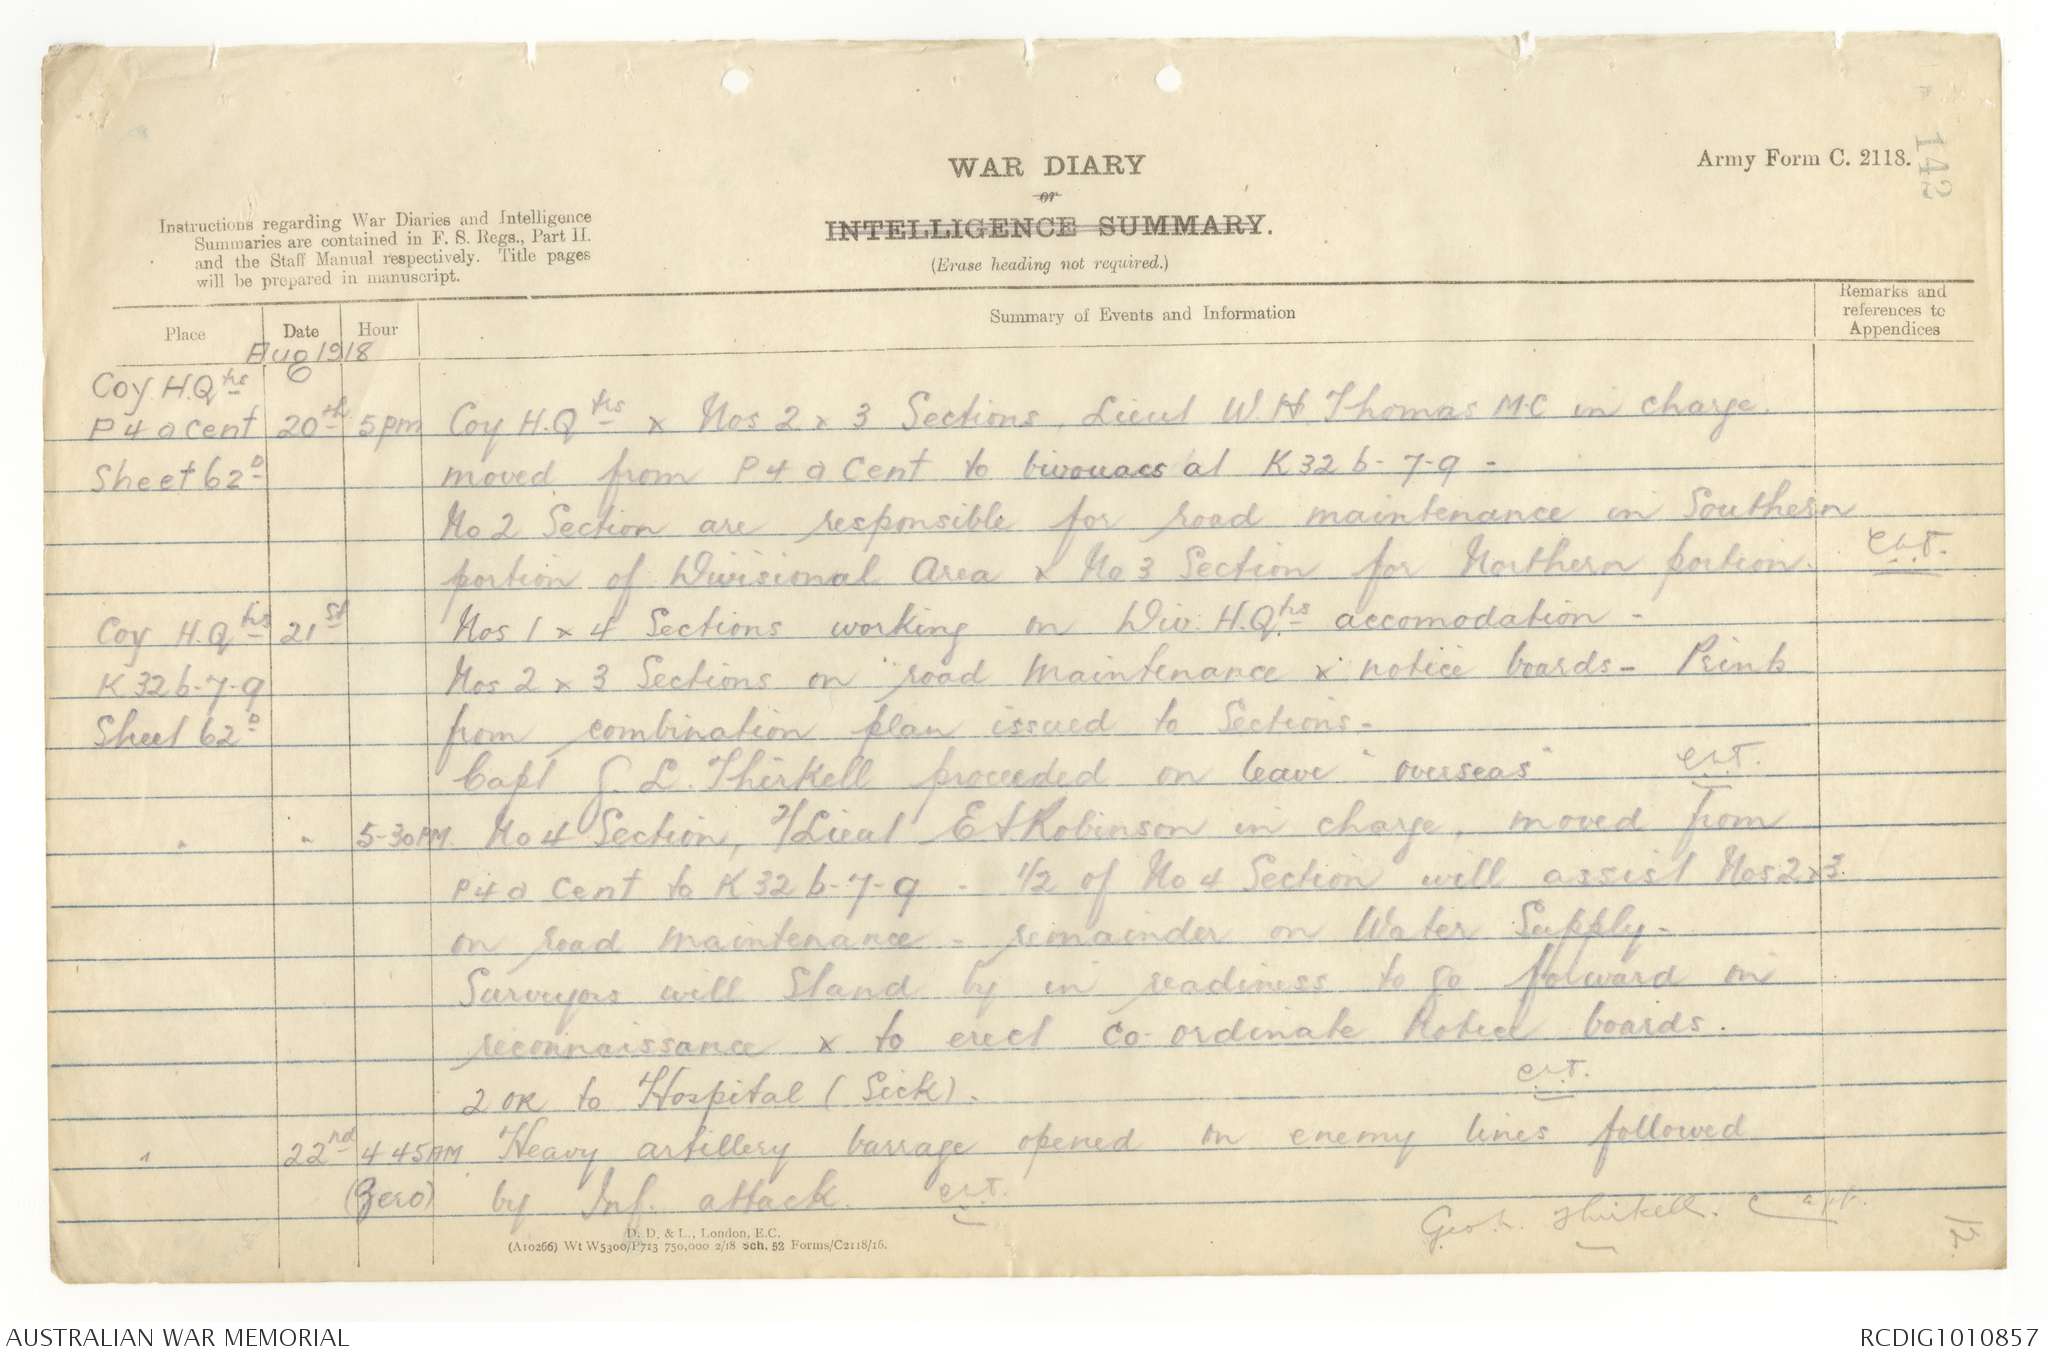 142
Army Form C. 2118.
WAR DIARY
or
INTELLIGENCE SUMMARY.
(Erase heading not required.)
Instructions regarding War Diaries and Intelligence
Summaries are contained in F. S. Regs., Part II.
and the Staff Manual respectively. Title pages
will be prepared in manuscript.
Place Date Hour Summary of Events and Information Remarks and references to Appendices
Aug 1918
Coy H.Qtrs
P 4 a Cent 20th 5 pm Coy H.Qtrs x Nos 2 x 3 Sections, Lieut W.H. Thomas M.C in charge.
Sheet 62D moved from P 4 a Cent to bivouacs at K 32 b-7-9 -
No 2 Section are responsible for road maintenance in Southern
portion of Divisional Area x No 3 Section for Northern portion.
Coy H.Qtrs 21st Nos 1 x 4 Sections working on Div. H.Qtrs accomodation -
K 32 b-7-9 Nos 2 x 3 Sections on road maintenance x notice boards - Prints
Sheet 62D from combination plan issued to Sections -
Capt G. L. Thirkell proceeded on leave "overseas"
" " 5-30 AM. No 4 Section, 2/Lieut E J Robinson in charge, moved from
P 4 a Cent to K 32 b-7-9 - 1/2 of No 4 Section will assist Nos 2 x 3.
on road maintenance - remainder on Water Supply -
Surveyors will stand by in readiness to go forward on
reconnaissance x to erect co-ordinate Notice boards.
2 OR to Hospital (Sick).
" 22nd 4 45 AM Heavy artillery barrage opened on enemy lines followed
(Zero) by Inf. attack.
Geo. L. Thirkell. Capt.
12.
D. D. & L., London, E.C.
(A10266) Wt W5300/P713 750,000 2/18 Sch. 52 Forms/C2118/16.
AUSTRALIAN WAR MEMORIAL
RCDIG1010857